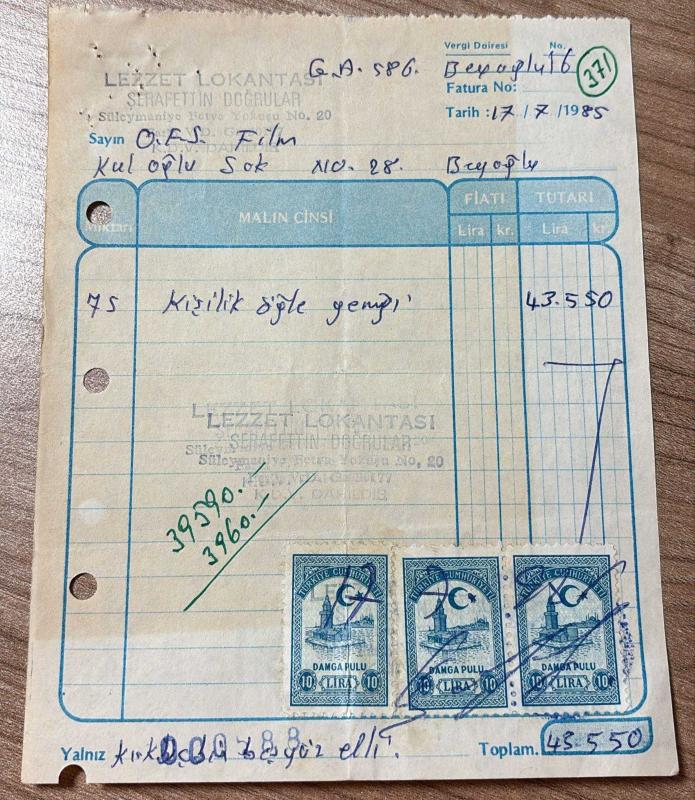 Vergi Dairesi No.
G.A. 586. Beyoğlu 6 371
LEZZET LOKANTASI
ŞERAFETTİN DOĞRULAR
Süleymaniye Fetva Yokuşu No. 20
Fatura No:
Tarih : 17 / 7 / 1985
Sayın O.F.S. Film
K.D.V. DAHİLDİR
Kuloğlu Sok No. 28. Beyoğlu
Miktarı MALIN CİNSİ FİATI TUTARI
Lira kr. Lira kr.
75 Kişilik öğle yemeği 43.550
LEZZET LOKANTASI
ŞERAFETTİN DOĞRULAR
Süleymaniye Fetva Yokuşu No, 20
K.D.V. DAHİLDİR
39590.-
3960.-
TÜRKİYE CUMHURİYETİ TÜRKİYE CUMHURİYETİ TÜRKİYE CUMHURİYETİ
DAMGA PULU DAMGA PULU DAMGA PULU
10 LİRA 10 10 LİRA 10 10 LİRA 10
Yalnız beşyüz elli. Toplam. 43.550